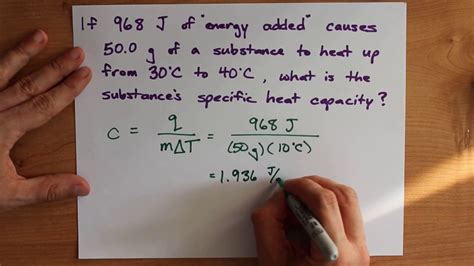 If 968 J of "energy added" causes
50.0 g of a substance to heat up
from 30°C to 40°C, what is the
substance's specific heat capacity?
c = q / mΔT = 968 J / (50g)(10°C)
= 1.936 J/